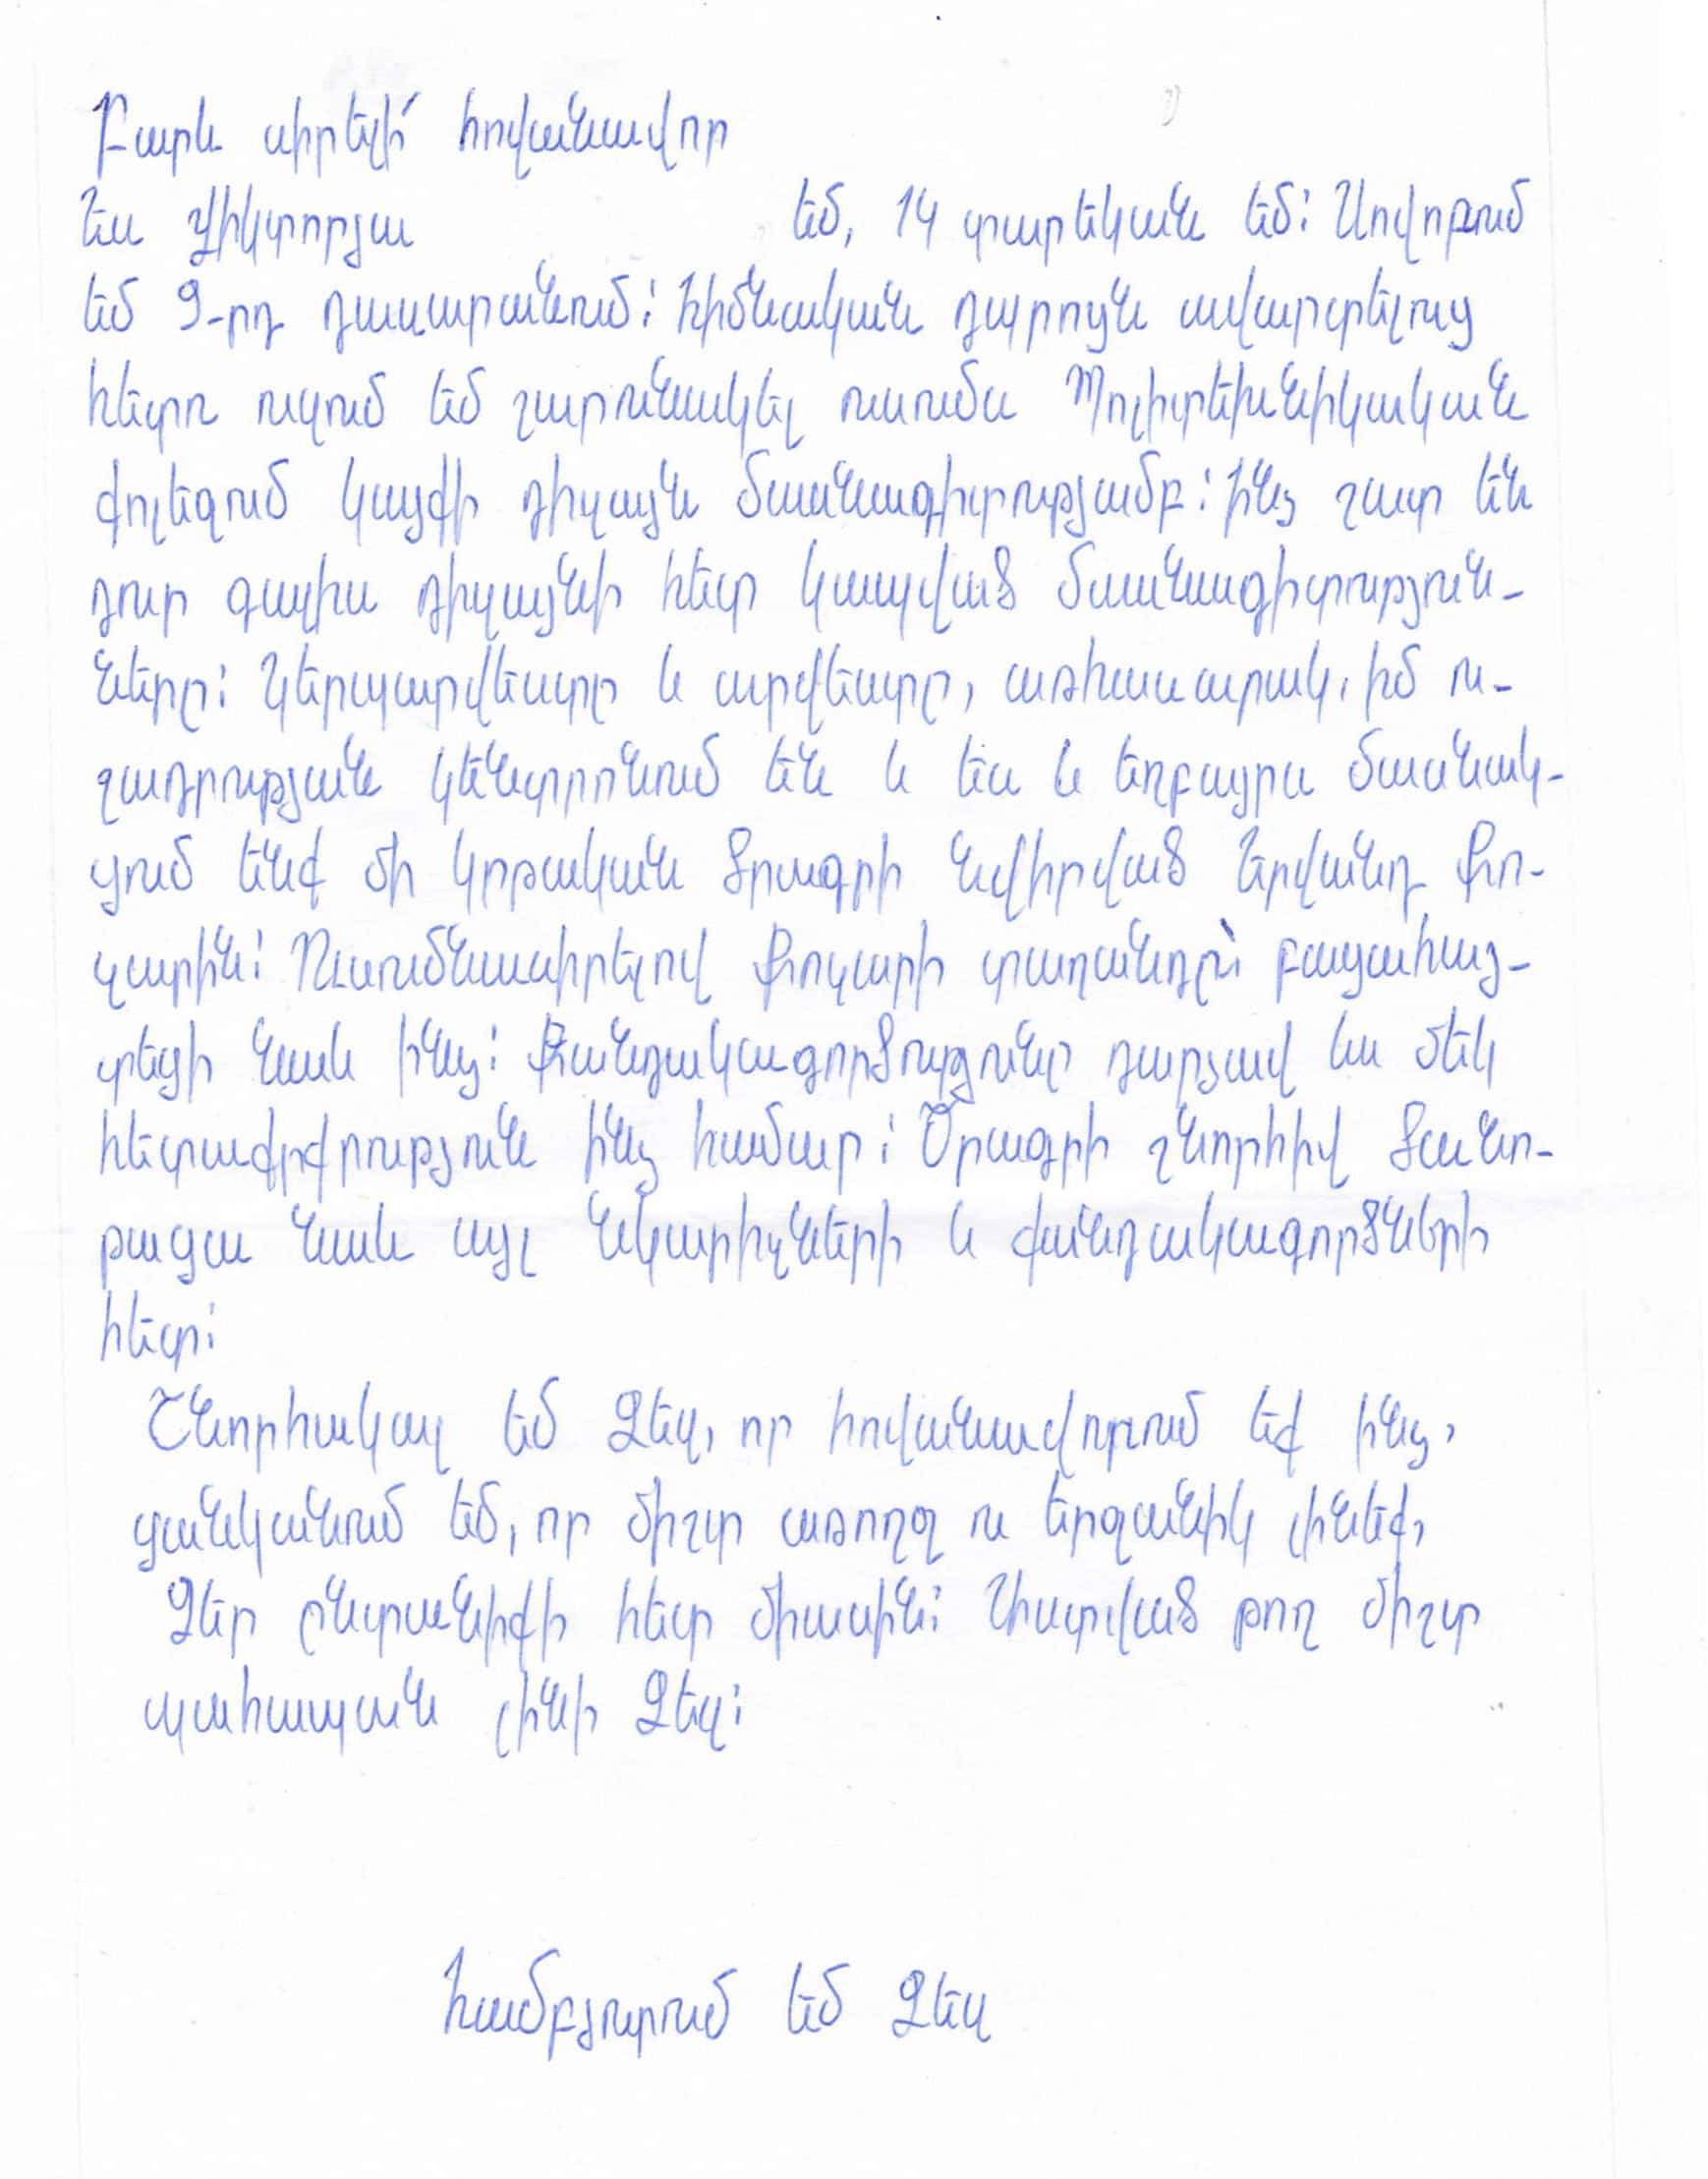 Բարև սիրելի՛ հովանավոր
Ես Վիկտորյա եմ, 14 տարեկան եմ։ Սովորում
եմ 9-րդ դասարանում։ Հիմնական դպրոցն ավարտելուց
հետո ուզում եմ շարունակել ուսումս Պոլիտեխնիկական
քոլեզում կայքի դիզայն մասնագիտությամբ։ Ինձ շատ են
դուր գալիս դիզայնի հետ կապված մասնագիտություն-
ները։ Կերպարվեստը և արվեստը, առհասարակ, իմ ու-
շադրության կենտրոնում են և ես և եղբայրս մասնակ-
ցում ենք մի կրթական ծրագրի նվիրված Երվանդ Քո-
չարին։ Ուսումնասիրելով Քոչարի տաղանդը՝ բացահայ-
տեցի նաև ինձ։ Քանդակագործությունը դարձավ ևս մեկ
հետաքրքրություն ինձ համար։ Ծրագրի շնորհիվ ծանո-
թացա նաև այլ նկարիչների և քանդակագործների
հետ։
Շնորհակալ եմ Ձեզ, որ հովանավորում եք ինձ,
ցանկանում եմ, որ միշտ առողջ ու երջանիկ լինեք,
Ձեր ընտանիքի հետ միասին։ Աստված թող միշտ
պահապան լինի Ձեզ։
Համբյուրում եմ Ձեզ